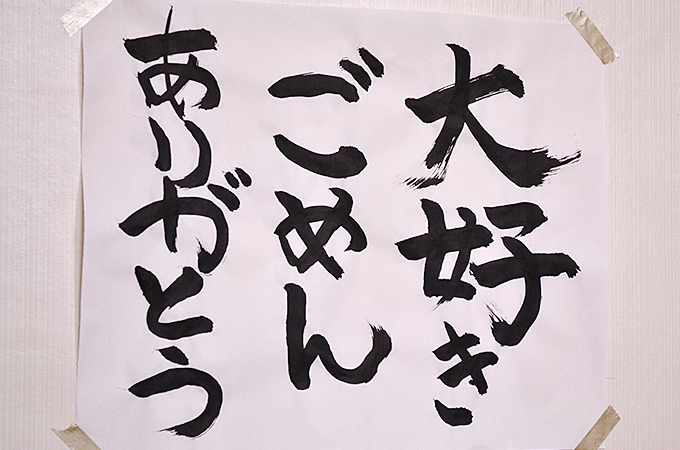 大好き
ごめん
ありがとう